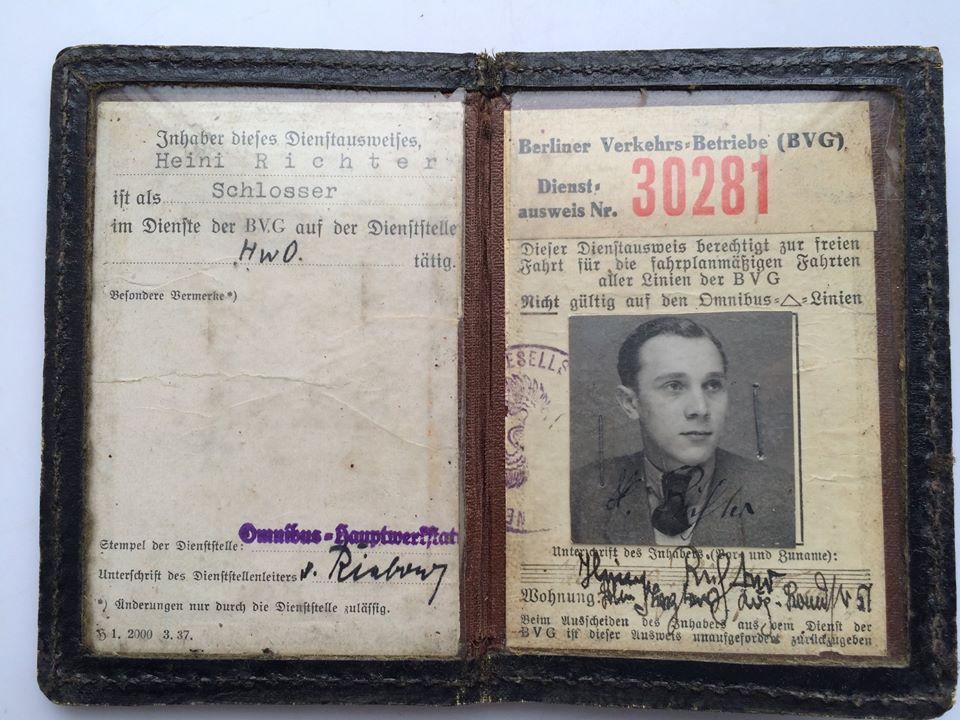 Inhaber dieses Dienstausweises,
Heini Richter
ist als Schlosser
im Dienste der BVG auf der Dienststelle
HwO. tätig.
Besondere Vermerke*)
Stempel der Dienststelle: Omnibus-Hauptwerkstat
Unterschrift des Dienststellenleiters
*) Änderungen nur durch die Dienststelle zulässig.
1. 2000 3. 37.
Berliner Verkehrs-Betriebe (BVG)
Dienst-
ausweis Nr. 30281
Dieser Dienstausweis berechtigt zur freien
Fahrt für die fahrplanmäßigen Fahrten
aller Linien der BVG
Nicht gültig auf den Omnibus-△-Linien
ESELLS
H. Richter
Unterschrift des Inhabers (Vor- und Zuname):
Richter
Wohnung:
Beim Ausscheiden des Inhabers aus dem Dienst der
BVG ist dieser Ausweis unaufgefordert zurückzugeben